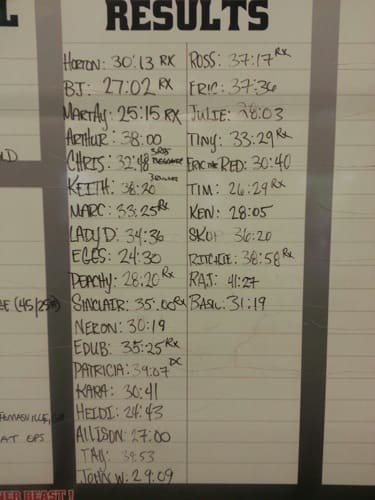 RESULTS
HORTON: 30:13 RX
BJ: 27:02 RX
MARTAY: 25:15 RX
ARTHUR: 38:00
CHRIS: 32:48
KEITH: 38:20
MARC: 33:25 RX
LADY D: 34:36
EGES: 24:30
PEACHY: 28:20 RX
SINCLAIR: 35:00 RX
NERON: 30:19
EDUB: 35:25 RX
PATRICIA: 39:07 DC
KARA: 30:41
HEIDI: 24:43
ALLISON: 27:00
TAY: 39:53
JOHN W: 29:09
ROSS: 37:17 RX
ERIC: 37:36
JULIE: 38:03
TINY: 33:29 RX
ERIC THE RED: 30:40
TIM: 26:29 RX
KEN: 28:05
SKOT: 36:20
RITCHIE: 38:58 RX
RAJ: 41:27
BASIL: 31:19
LD
GE (45/25#)
THOMASVILLE,
AT OPS
BEAST!